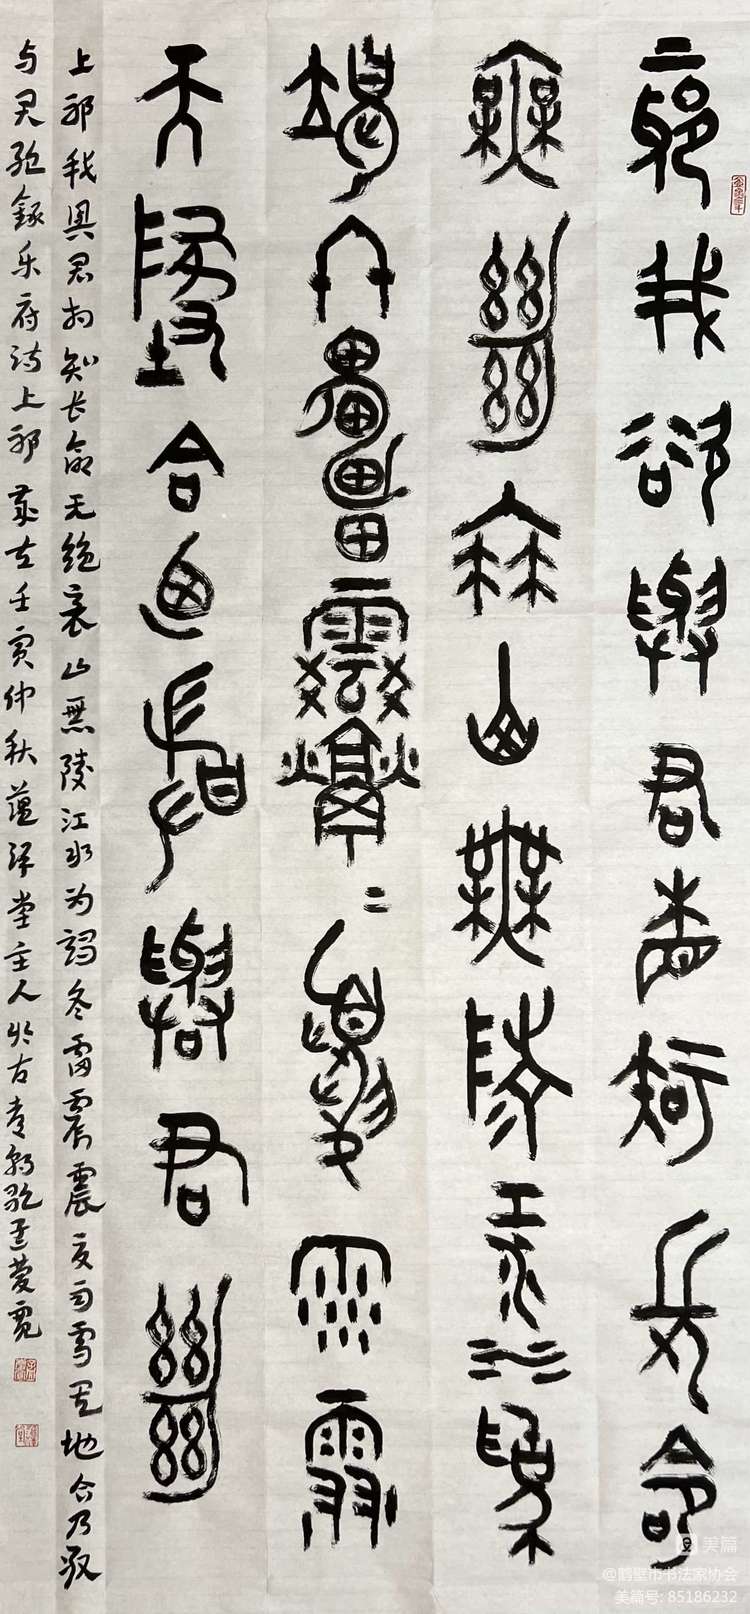 上邪我欲與君相知長命
無絕衰山無陵江水為
竭冬雷震震夏雨雪
天地合乃敢與君絕
上邪我與君相知长命无绝衰山無陵江水为竭冬雷震震夏雨雪天地合乃敢
与君绝錄乐府诗上邪岁在壬寅仲秋蕴泽堂主人於古
美篇
@鹤壁市书法家协会
美篇号: 85186232